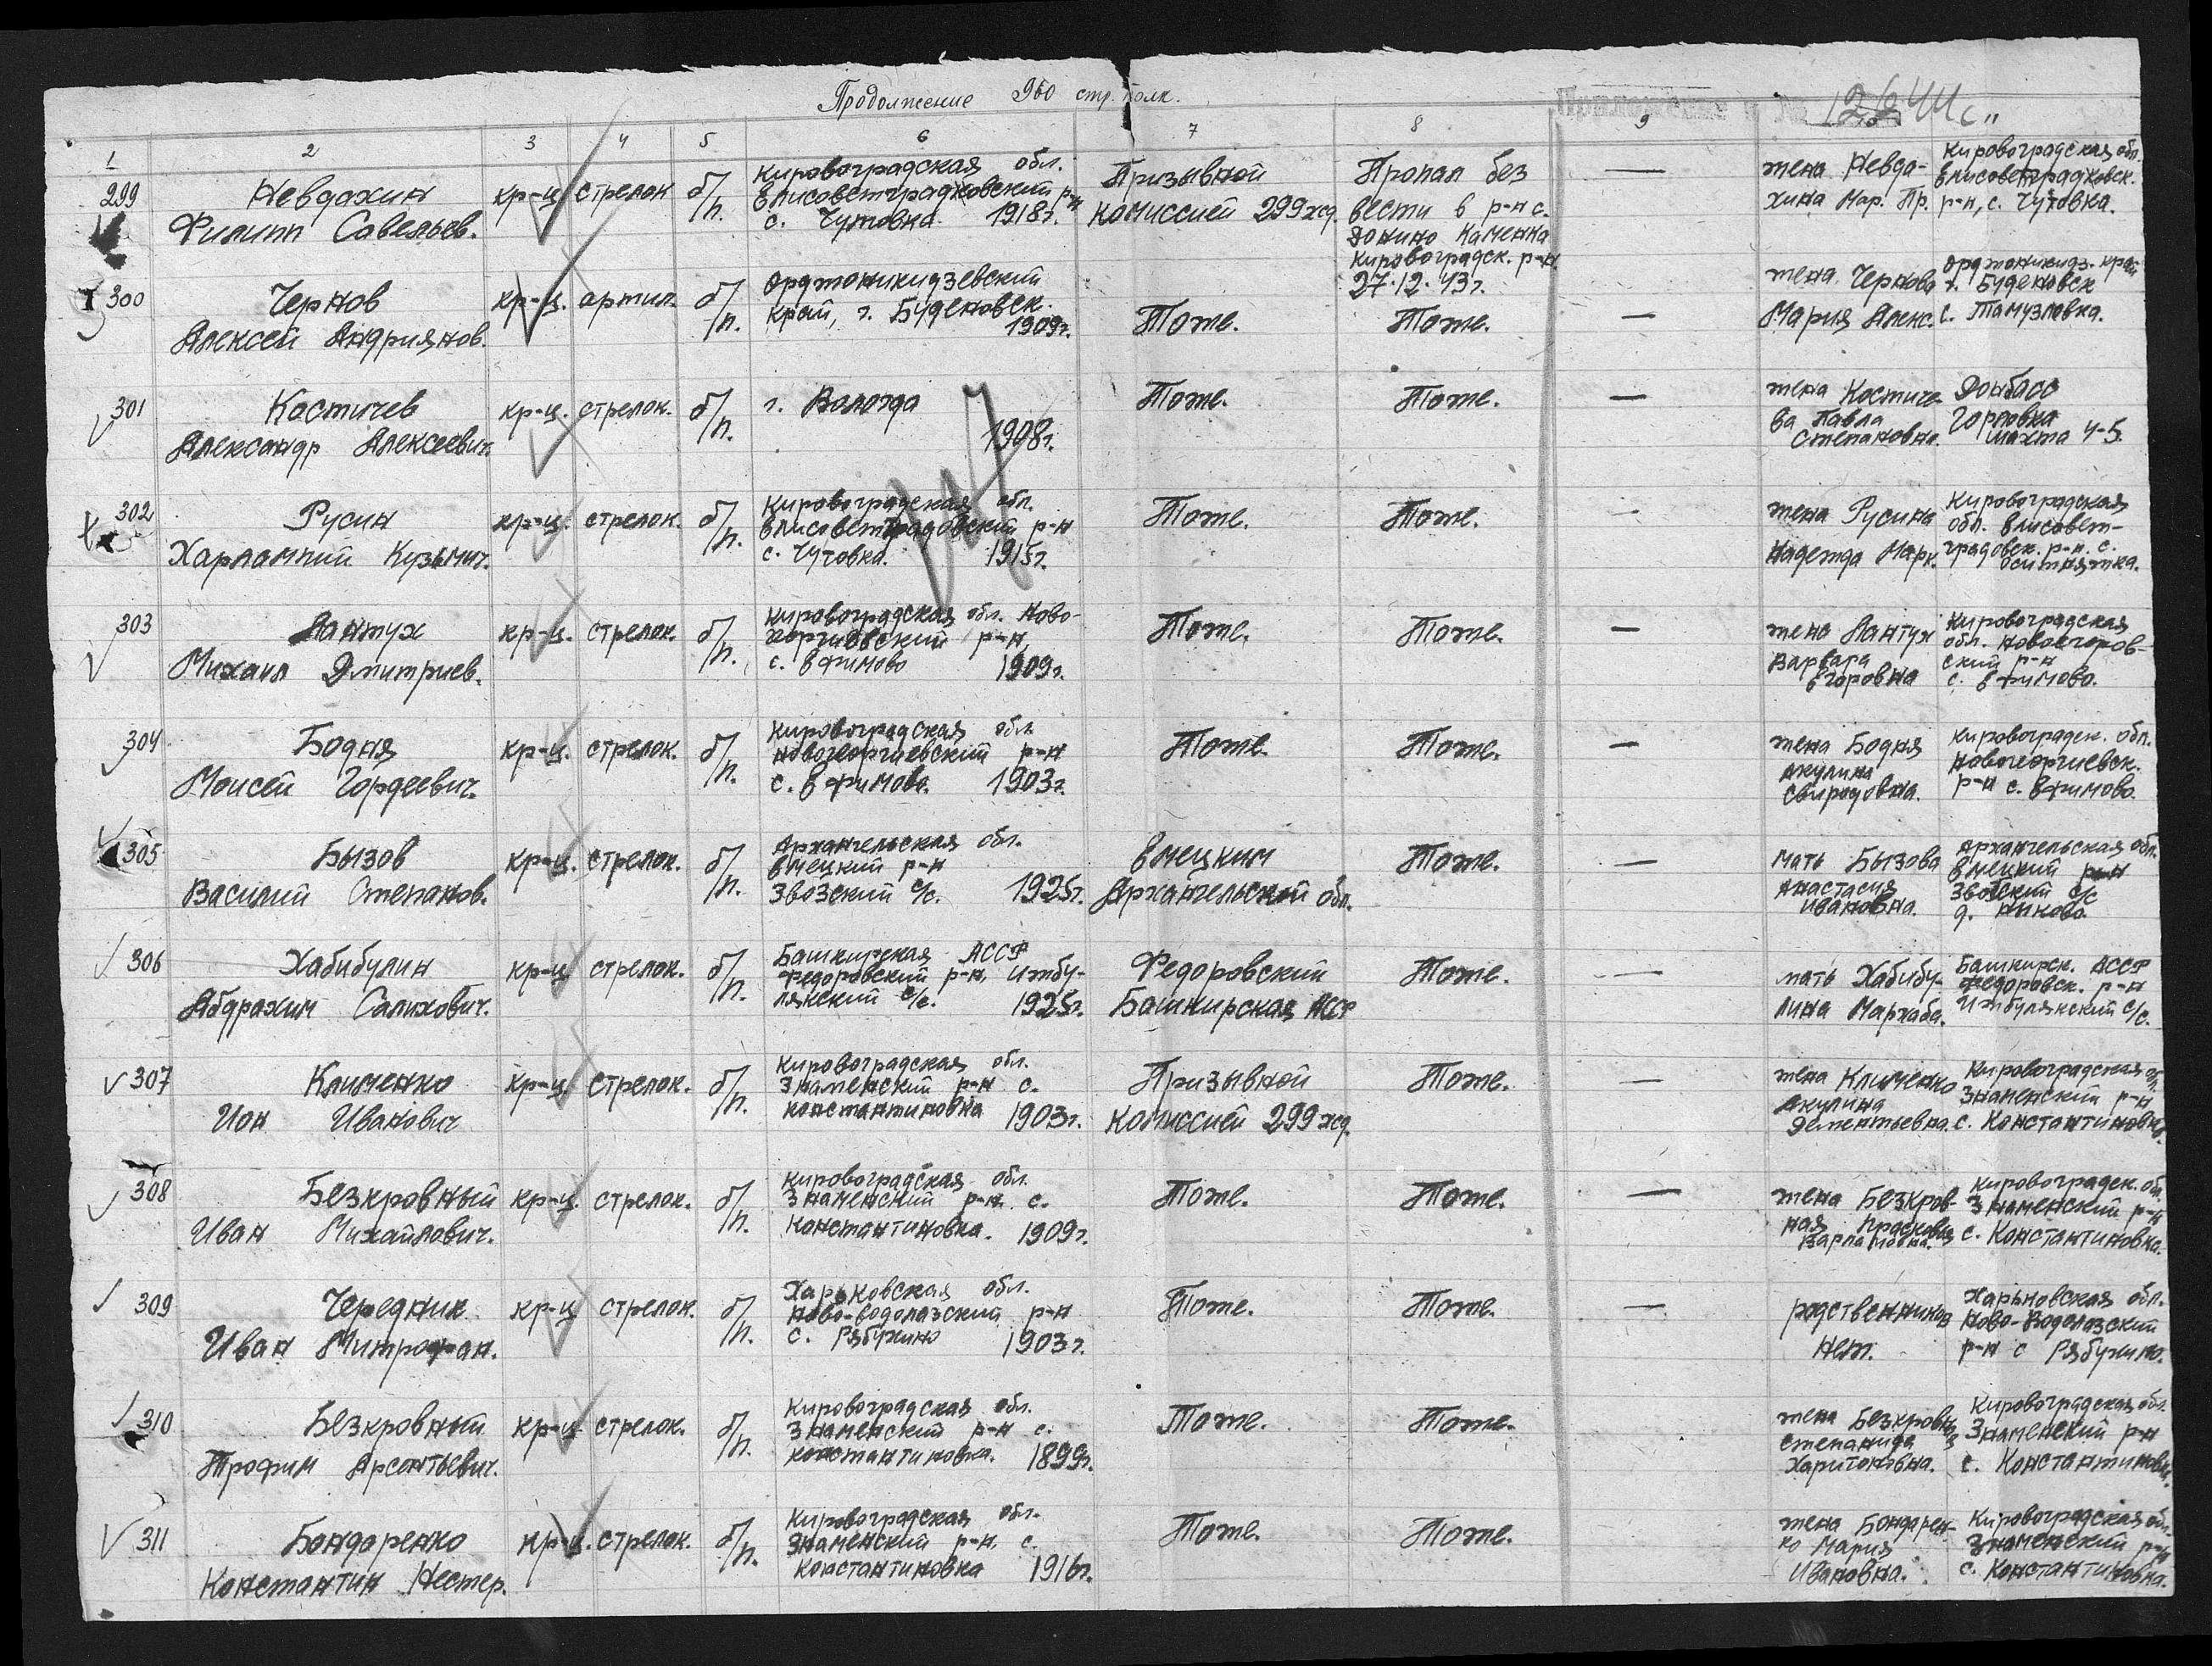 Продолжение 960 стр. полк.
1 2 3 4 5 6 7 8 9
299 Невдахин Филипп Савельев. кр-ц стрелок б/п. Кировоградская обл. Елисаветградковский р-н с. Чутовка 1918г. Призывной комиссией 299 жсд. Пропал без вести в р-н с. Донино Каменка Кировоградск. р-н. 27.12.43г. — жена Невдахина Мар. Пр. Кировоградская обл. Елисаветградковск. р-н, с. Чутовка.
300 Чернов Алексей Андриянов. кр-ц. артил. б/п. Орджоникидзевский край, г. Буденовск 1909г. Тоже. Тоже. — жена Чернова Мария Алекс. Орджоникидз. край г. Буденовск с. Тамузловка.
301 Костичев Александр Алексеевич. кр-ц. стрелок. б/п. г. Вологда 1908г. Тоже. Тоже. — жена Костичева Павла Степановна. Донбасс Горловка шахта 4-5.
302 Русин Харлампий Кузьмич. кр-ц. стрелок. б/п. Кировоградская обл. Елисаветградовский р-н с. Чутовка. 1915г. Тоже. Тоже. — жена Русина Надежда Марк. Кировоградская обл. Елисаветградовск. р-н. с. Оситняжка.
303 Лантух Михаил Дмитриев. кр-ц. стрелок. б/п. Кировоградская обл. Ново- р-н, с. Ефимово 1909г. Тоже. Тоже. — жена Лантух Варвара Егоровна Кировоградская обл. р-н с. Ефимово.
304 Бодня Моисей Гордеевич. кр-ц. стрелок. б/п. Кировоградская обл. Новогеоргиевский р-н с. Ефимово. 1903г. Тоже. Тоже. — жена Бодня Акулина Свиридовна. Кировоградск. обл. Новогеоргиевск. р-н с. Ефимово.
305 Бызов Василий Степанов. кр-ц. стрелок. б/п. Архангельская обл. Емецкий р-н Звозский с/с. 1925г. Емецким Архангельской обл. Тоже. — мать Бызова Анастасия Ивановна. Архангельская обл. Емецкий р-н Звозский с/с д.
306 Хабибулин Абдрахим Салихович. кр-ц стрелок. б/п. Башкирская АССР Федоровский р-н, Ижбулякский с/с. 1925г. Федоровский Башкирская АССР Тоже. — мать Хабибулина Мархаба. Башкирск. АССР Федоровск. р-н Ижбулякский с/с.
307 Клименко Ион Иванович кр-ц. стрелок. б/п. Кировоградская обл. Знаменский р-н с. Константиновка 1903г. Призывной комиссией 299 жсд. Тоже. — жена Клименко Акулина Дементьевна. Кировоградская обл. Знаменский р-н с. Константиновка.
308 Безкровный Иван Михайлович. кр-ц. стрелок. б/п. Кировоградская обл. Знаменский р-н. с. Константиновка. 1909г. Тоже. Тоже. — жена Безкровная Прасковья Варламовна. Кировоградск. обл. Знаменский р-н с. Константиновка.
309 Чередник Иван Митрофан. кр-ц стрелок. б/п. Харьковская обл. Ново-Водолазский р-н с. Рябухино 1903г. Тоже. Тоже. — родственников нет. Харьковская обл. Ново-Водолазский р-н с Рябухино.
310 Безкровный Трофим Арсентьевич. кр-ц стрелок. б/п. Кировоградская обл. Знаменский р-н с. Константиновка. 1899г. Тоже. Тоже. жена Безкровная Степанида Харитоновна. Кировоградская обл. Знаменский р-н с. Константиновка.
311 Бондаренко Константин Нестер. кр-ц. стрелок. б/п. Кировоградская обл. Знаменский р-н. с. Константиновка 1916г. Тоже. Тоже. жена Бондаренко Мария Ивановна. Кировоградская обл. Знаменский р-н с. Константиновка.